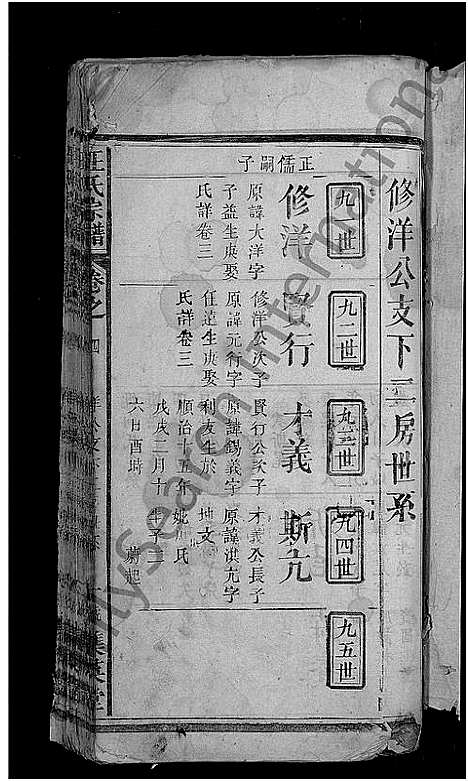 修洋公支下二房世系
九一世
九二世
九三世
九四世
九五世
正儒嗣子
修洋
原諱大洋字
子益生庚娶
氏詳卷三
賢行
修洋公次子
原諱元行字
任遠生庚娶
氏詳卷三
才義
賢行公次子
原諱錫義字
利友生於
順治十五年
戊戌二月十
六日酉時
斯亢
才義公長子
原諱淇亢字
地文
氏
子二
氏宗譜
卷之四
FamilySearch International